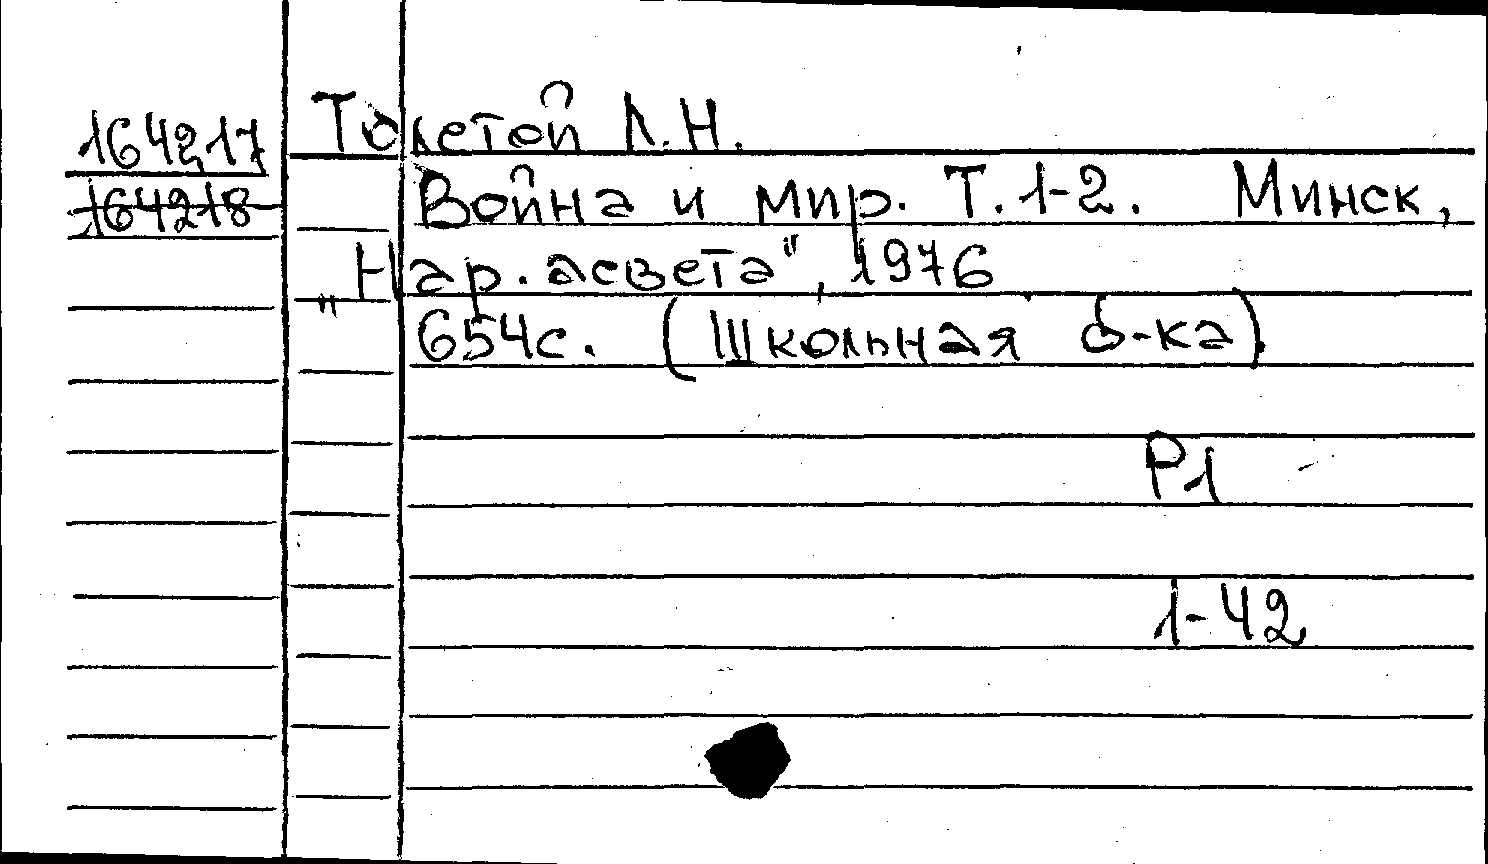 164217 Толстой Л.Н.
164218 Война и мир. Т.1-2. Минск,
„Нар.асвета", 1976
654с. (Школьная б-ка)
Р1
1-42